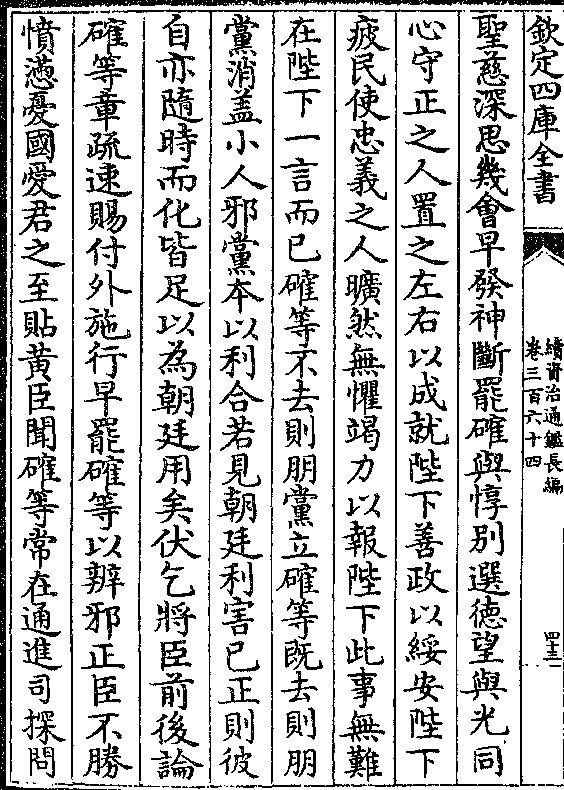 欽定四庫全書
續資治通鑑長編
卷三百六十四
四十三
聖慈深思幾會早發神斷罷確與惇别選徳望與光同
心守正之人置之左右以成就陛下善政以綏安陛下
疲民使忠義之人曠然無懼竭力以報陛下此事無難
在陛下一言而已確等不去則朋黨立確等既去則朋
黨消盖小人邪黨本以利合若見朝廷利害已正則彼
自亦隨時而化皆足以為朝廷用矣伏乞將臣前後論
確等章疏速賜付外施行早罷確等以辨邪正臣不勝
憤懣憂國愛君之至貼黄臣聞確等常在通進司探問